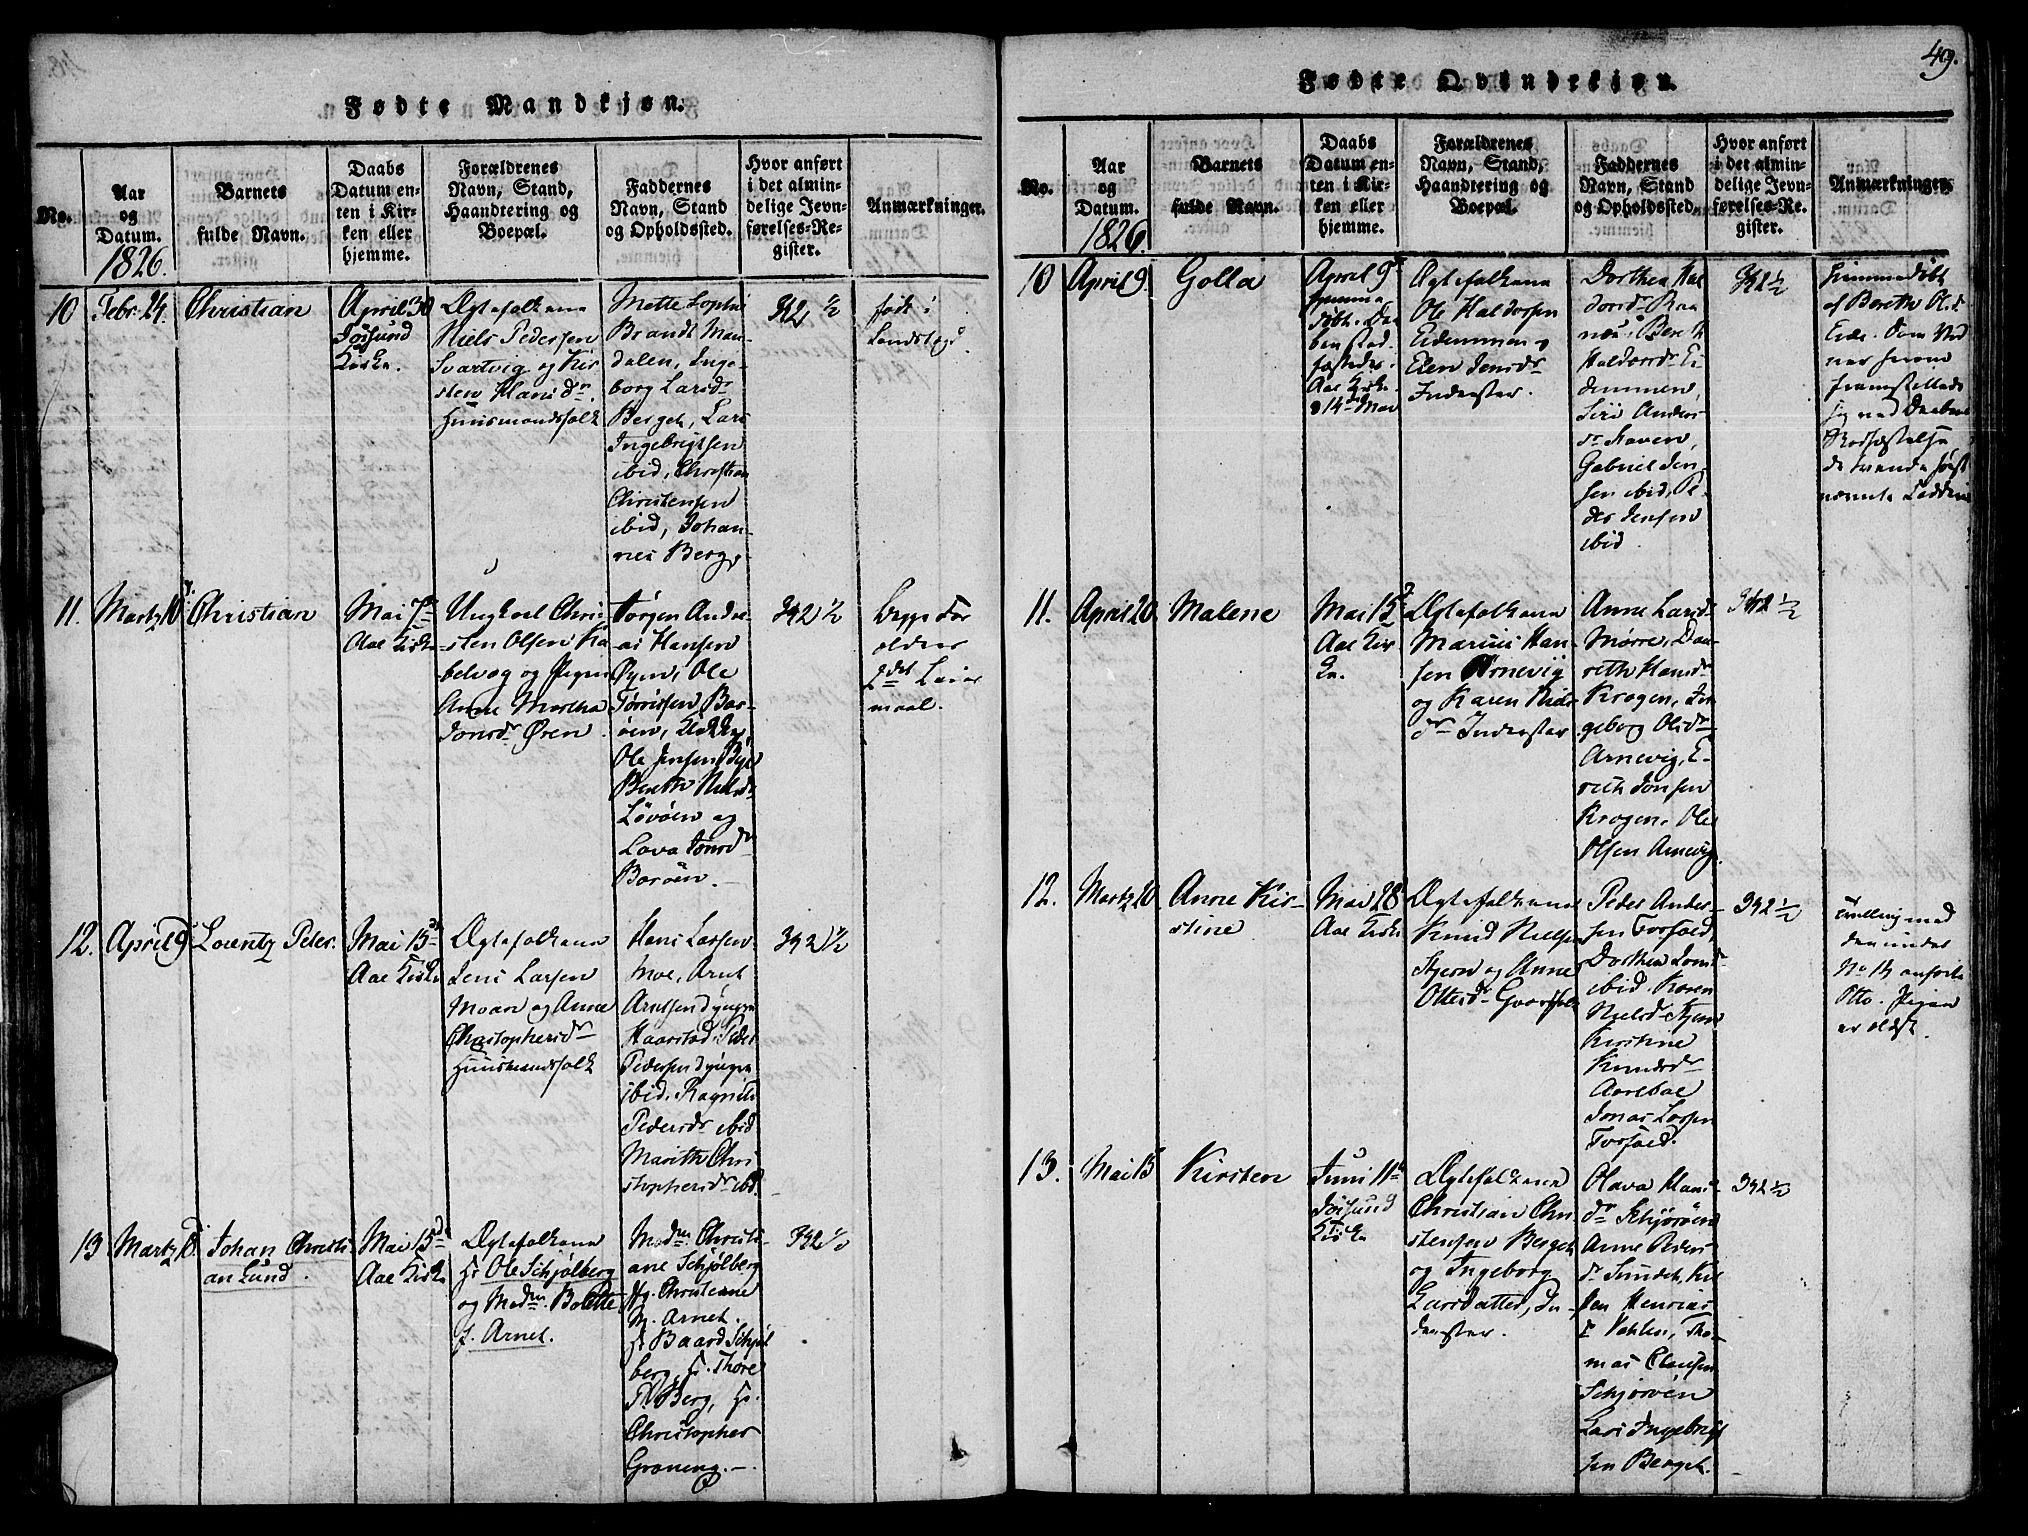 Fødte Mandkjøn.
No.
Aar
og
Datum.
1826.
Barnets
fulde Navn.
Daabs
Datum en-
ten i Kir-
ken eller
hjemme.
Forældrenes
Navn, Stand,
Haandtering og
Boepæl.
Faddernes
Navn, Stand
og Opholdssted.
Hvor anført
i det almin-
delige Jevn-
førelses-Re-
gister.
Anmærkninger.
10
Febr. 24.
Christian
April 30
Jøssund
Kirke.
Ægtefolkene
Niels Pedersen
Svartvig og Kir-
sten Hansdr.
Huusmandsfolk
Mette Sophie
Brandt Man-
dalen, Inge-
borg Larsdr
Berget, Lars
Ingebrigtsen
ibid, Christian
Christensen
ibid, Johan-
nes Berg.
342 ½
født i
11.
Martz 10
Christian
Mai 7de
Aae Kirke
Ungkarl Chri-
sten Olsen Ka-
belvog og Pigen
Anne Martha
Jonsdr Øren.
Jørgen Andre-
as Hansen
Øyen, Ole
Tørrissen Bor-
øen,
Ole Jensen
Bereth Nielsdr
Løvøen og
Lava Jonsdr
Borøen.
342 ½
Begge For
ældres
2det Leier
maal.
12.
April 9
Lorentz Peter.
Mai 15de
Aae Kirke
Ægtefolkene
Jens Larsen
Moen og Anne
Christophersdr
Huusmandsfolk
Hans Larsen
Moe, Arnt
Arntsen d yngre
Haarstad, Peder
Pedersen d yngre
ibid. Ragnild
Pedersdr ibid
Mareth Chri
stophersdr ibd.
342 ½
13
Martz
Johan Christi
an Lund.
Mai 15de
Aae Kirke
Ægtefolkene
Hr Ole Schjølberg
og Madm. Bolette
f. Arnet.
Madm Christi-
ane Schjølberg
Jfr. Christiane
M. Arnet.
Hr Baard Schjøl
berg, Hr. Thore
Th Berg, Hr.
Christopher
Grøning.
342 ½
49.
Fødte Qvindekjøn.
No.
Aar
og
Datum.
1826
Barnets
fulde Navn.
Daabs
Datum en-
ten i Kir-
ken eller
hjemme.
Forældrenes
Navn, Stand,
Haandtering og
Boepæl.
Faddernes
Navn, Stand
og Opholdssted.
Hvor anført
i det almin-
delige Jevn-
førelses-Re-
gister.
Anmærkninger.
10
April 9.
Golla
April 9de
hjemme
døbt. Daa
ben stad
fæstedes i
Aae Kirke
d 14de Mai
Ægtefolkene
Ole Haldorsen
Eidemmen og
Elen Jensdr
Inderster.
Dorthea Hal
dorsdr Raa
næs. Bereth
Haldorsdr Ei
demmen,
Siri Anders-
dr Haven,
Gabriel Jen-
sen ibid, Pe-
der Jensen
ibid.
342 ½
Hiemmedøbt
af Bereth Olsd.
som Vid
ner herom
fremstillede
sig ved Daabens
Stadfæstelse
de tvende først
nævnte Faddere
11.
April 20
Malene
Mai 15de
Aae Kir
ke.
Ægtefolkene
Marius Han-
sen Arnevig
og Karen Niels
dr Inderster
Anne Larsdr
Mørre, Dor-
reth Hansdr
Krogen, In-
geborg Olsdr
Arnevig, E-
rich Jonsen
Krogen, Ole
Olsen Arnevig.
342 ½
12.
Martz 20
Anne Kir-
stine
Mai 28
Aae Kirke
Ægtefolkene
Knud Nielsen
Stjern og Anne
Ottersdr Gaardfolk
Peder Ander-
sen Torfald,
Dorthea Jonsdr
ibid. Karen
Nielsdr Stjern
Kirstine
Knudsdr
Jonas Larsen
Torfald.
342 ½
Tvilling med
den under
No 14 anførte
Otto. Pigen
er ældst.
13.
Mai 15
Kirsten
Juni 11te
Jøssund
Kirke
Ægtefolkene
Christian Chri
stensen Berget
og Ingeborg
Larsdatter, In-
derster.
Olava Hans-
dr Schjørøen
Anne Peders
dr Sundet, Kir
sten Henrics
dr Vahlen, Tho-
mas Clausen
Schjørøen
Lars Ingebrigt
sen Berget.
342 ½